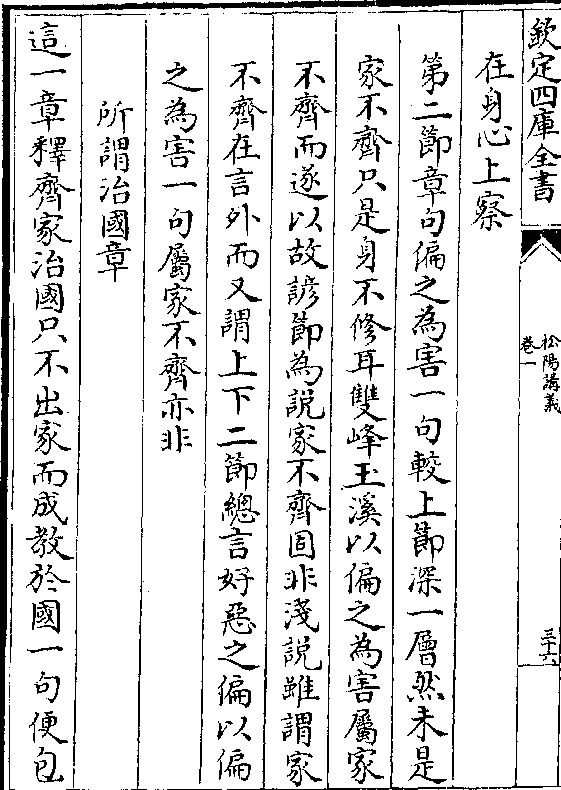 欽定四庫全書
松陽講義
卷一
三十六
在身心上察
第二節章句偏之為害一句較上節深一層然未是
家不齊只是身不修耳雙峰玉溪以偏之為害屬家
不齊而遂以故諺節為說家不齊固非淺說雖謂家
不齊在言外而又謂上下二節總言好惡之偏以偏
之為害一句屬家不齊亦非
所謂治國章
這一章釋齊家治國只不出家而成教於國一句便包